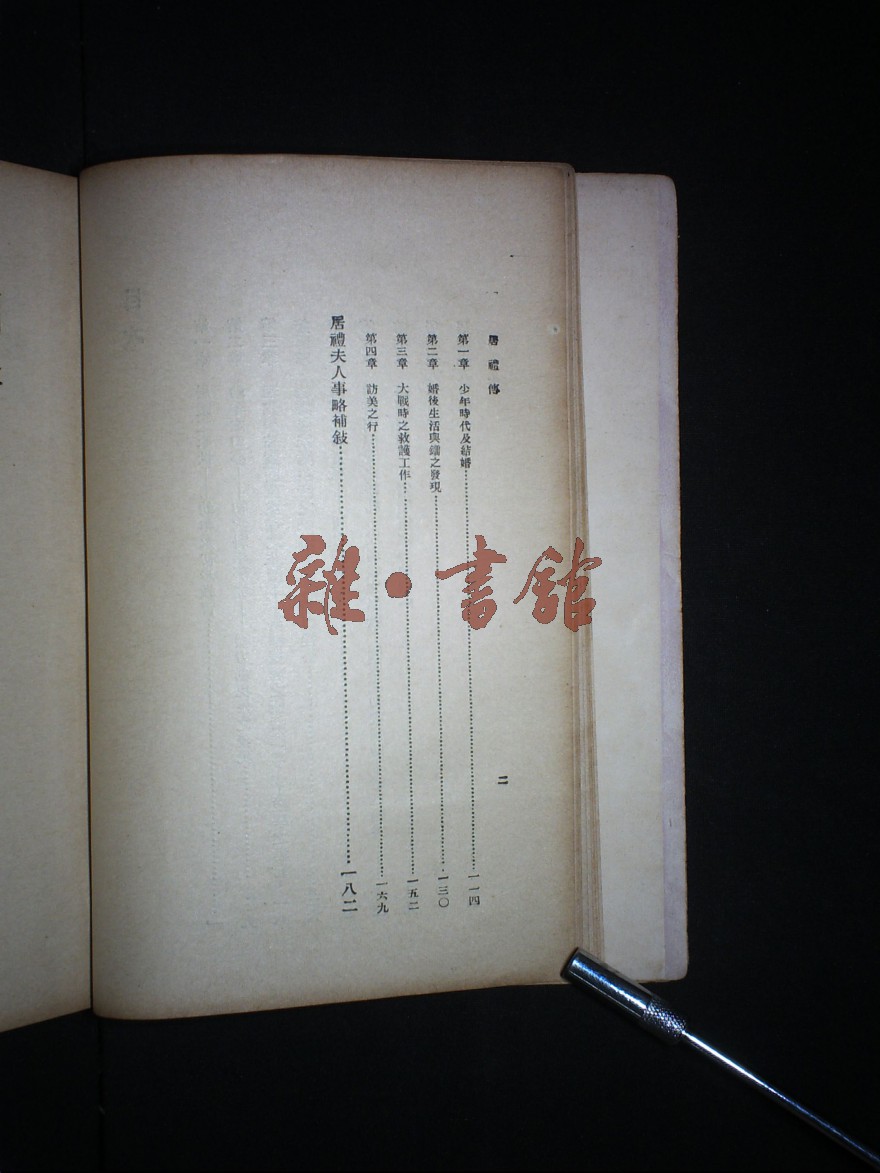 居禮傳
第一章 少年時代及結婚……一一四
第二章 婚後生活與鐳之發現……一三〇
第三章 大戰時之救護工作……一五二
第四章 訪美之行……一六九
居禮夫人事略補敍……一八二
二
雜•書館